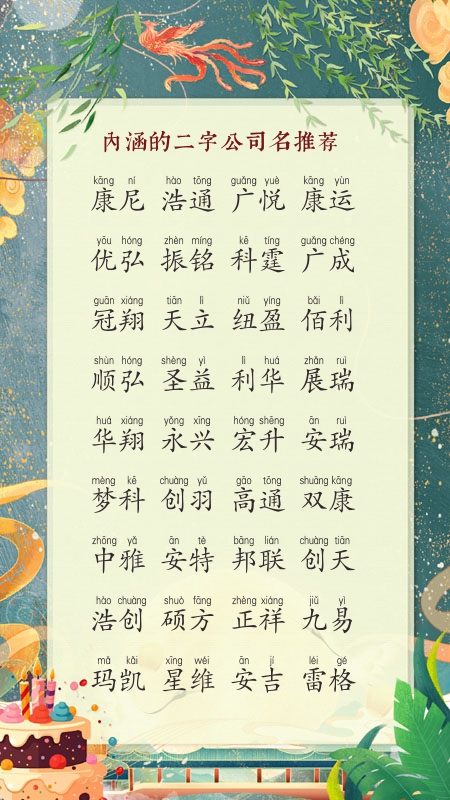 内涵的二字公司名推荐
kāng ní hào tōng guǎng yuè kāng yùn
康尼 浩通 广悦 康运
yōu hóng zhèn míng kē tíng guǎng chéng
优弘 振铭 科霆 广成
guān xiáng tiān lì niǔ yíng bǎi lì
冠翔 天立 纽盈 佰利
shùn hóng shèng yì lì huá zhǎn ruì
顺弘 圣益 利华 展瑞
huá xiáng yǒng xīng hóng shēng ān ruì
华翔 永兴 宏升 安瑞
mèng kē chuàng yǔ gāo tōng shuāng kāng
梦科 创羽 高通 双康
zhōng yǎ ān tè bāng lián chuàng tiān
中雅 安特 邦联 创天
hào chuàng shuò fāng zhèng xiáng jiǔ yì
浩创 硕方 正祥 九易
mǎ kǎi xīng wéi ān jí léi gé
玛凯 星维 安吉 雷格